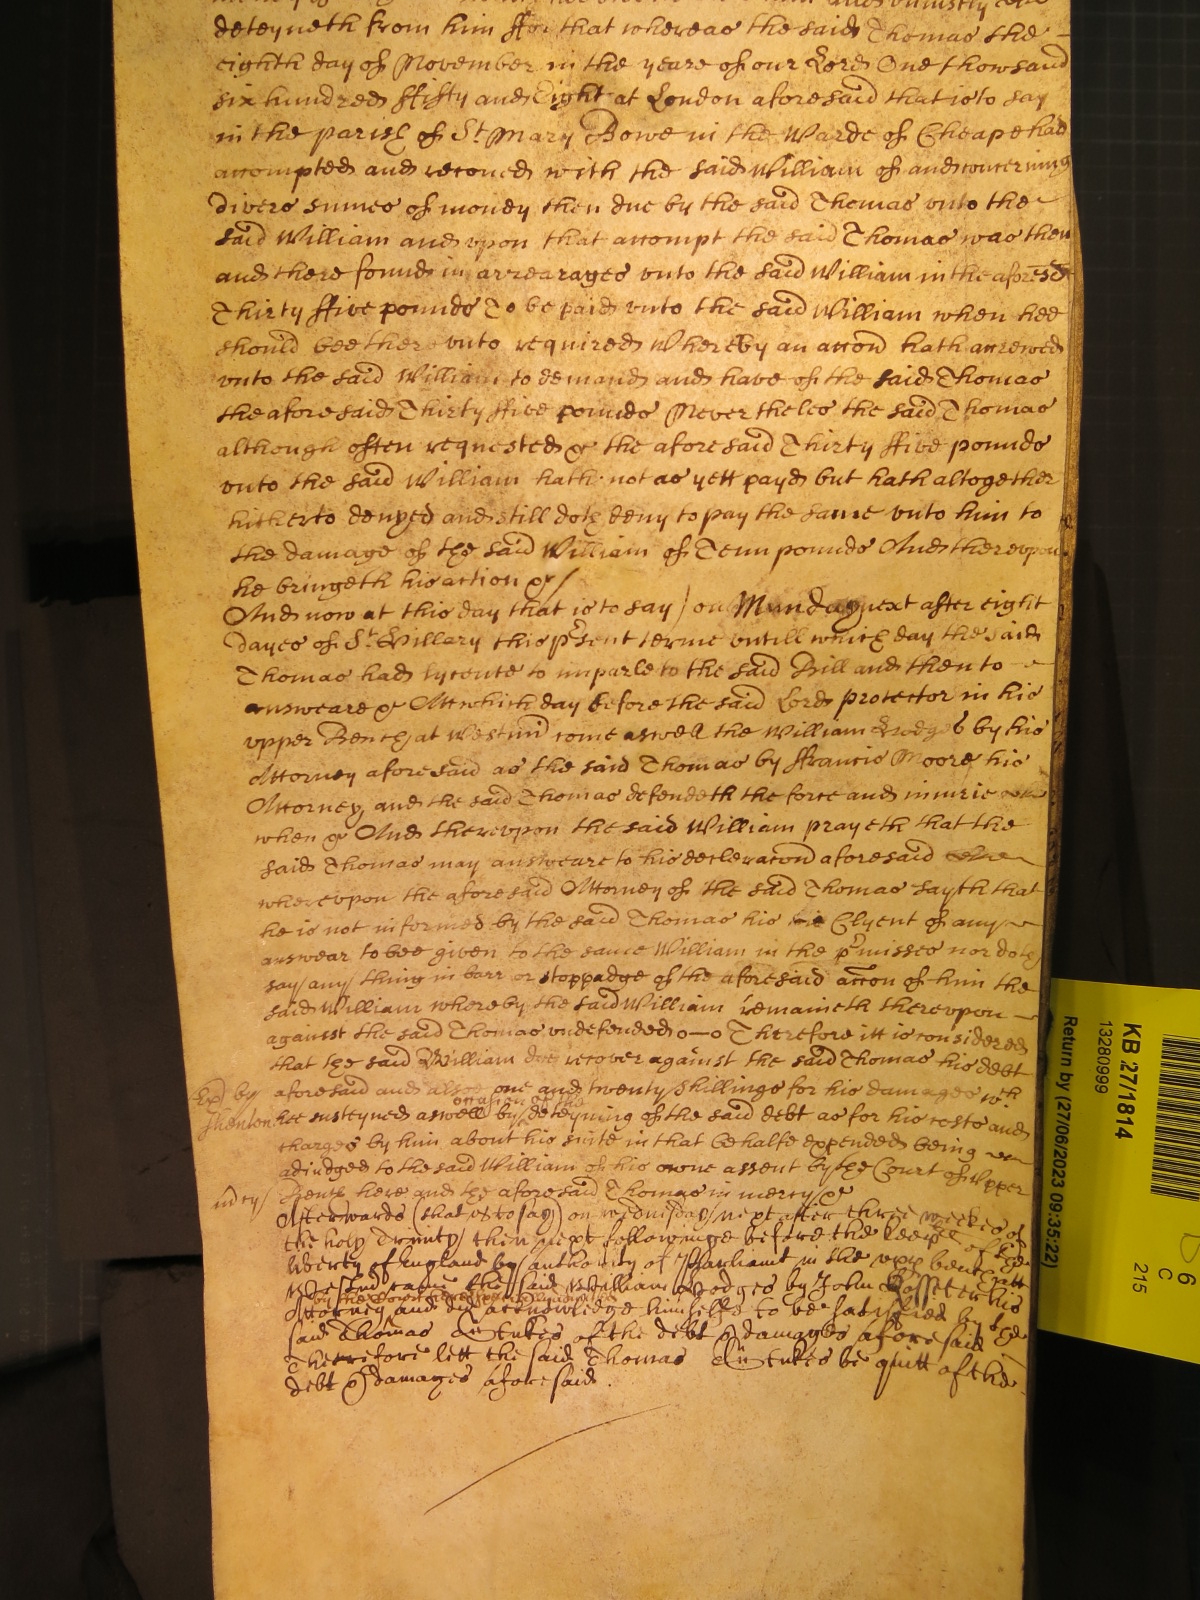 deteyneth from him ffor that whereas the said Thomas the
eighth day of November in the yeare of our Lord One thowsand
six hundred ffifty and Eight at London aforesaid that is to say
in the parish of St Mary Bowe in the Warde of Cheape had
accompted and reconed with the said William of and concerning
divers sumes of money then due by the said Thomas vnto the
said William and vpon that accompt the said Thomas was then
and there found in arrearages vnto the said William in the aforesd
Thirty ffive pounds To be paid vnto the said William when hee
should bee therevnto required Whereby an accon hath accrewed
vnto the said William to demand and have of the said Thomas
the aforesaid Thirty ffive pounds Neverthelес the said Thomas
although often requested &c the aforesaid Thirty ffive pounds
vnto the said William hath not as yett payd but hath altogether
hitherto denyed and still doth deny to pay the same vnto him to
the damage of the said William of Tenn pounds And therevpon
he bringeth his action &c/
And now at this day that is to say / on Munday next after eight
dayes of St Hillary this prsent terme vntill which day the said
Thomas had lycence to imparle to the said Bill and then to
answeare &c Att which day before the said Lord protector in his
vpper Bench at Westmr come aswell the William Hodges by his
Attorney aforesaid as the said Thomas by ffrancis Moore his
Attorney and the said Thomas defendeth the force and iniurie
when &c And therevpon the said William prayeth that the
said Thomas may answeare to his declaracon aforesaid
wherevpon the aforesaid Attorney of the said Thomas sayth that
he is not informed by the said Thomas his Clyent of any
answear to bee given to the same William in the prmisses nor doth
say any thing in barr or stoppadge of the aforesaid accon of him the
said William whereby the said William remaineth therevpon
against the said Thomas vndefended Therefore itt is considered
that the said William doe recover against the said Thomas his debt
aforesaid and alsoe one and twenty shillings for his damages wch
hee susteyned aswell by occasion of the deteyning of the said debt as for his costs and
charges by him about his suite in that behalfe expended being
adiudged to the said William of his owne assent by the Court of Vpper
Bench here and the aforesaid Thomas in mercy &c
mcy/
Afterwards (that is to say) on wednesday next after three weekes of
the holy Trinity then next followinge before the keeprs of the
liberty of England by authority of Parliamt in the vppr bench att
Westmr came the said William Hodges by John Rosseter his
Attorney and did acknowledge himselfe to be satisfied by the
said Thomas of the debt & damages aforesaid
Therefore lett the said Thomas be quitt of the
debt & damages aforesaid.
KB 27/1814
13280999
Return by (27/06/2023 09:35:22)
D 6
C
215